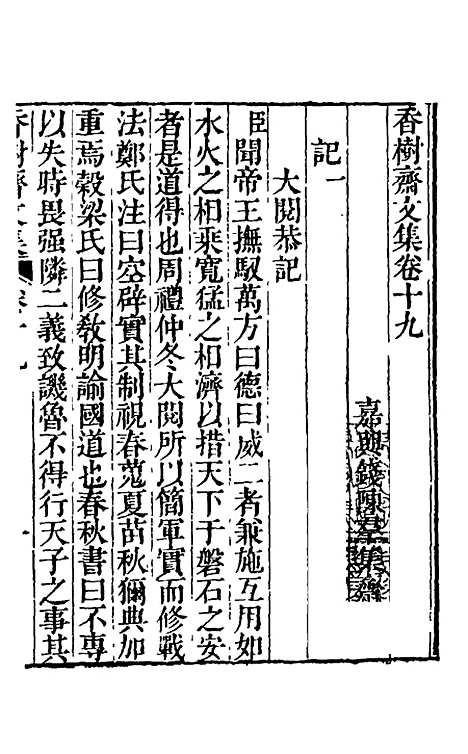 香樹齋文集卷十九
嘉興錢陳羣集齋
記一
大閱恭記
臣聞帝王撫馭萬方曰德曰威二者兼施互用如
水火之相乘寬猛之相濟以措天下于磐石之安
者是道得也周禮仲冬大閱所以簡軍實而修戰
法鄭氏注曰空辟實其制視春蒐夏苗秋獮典加
重焉穀梁氏曰修敎明諭國道也春秋書曰不專
以失時畏强隣二義致譏魯不得行天子之事其
香樹齋文集 卷十九 一